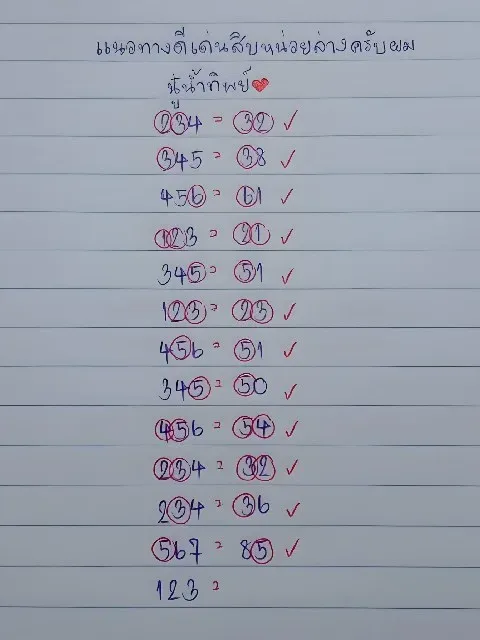 แนวทางดีเด่นสิบหน่วยล่างครับผม
นู๋น้ำทิพย์
234 = 32 ✓
345 = 38 ✓
456 = 61 ✓
123 = 21 ✓
345 = 51 ✓
123 = 23 ✓
456 = 51 ✓
345 = 50 ✓
456 = 54 ✓
234 = 32 ✓
234 = 36 ✓
567 = 85 ✓
123 =